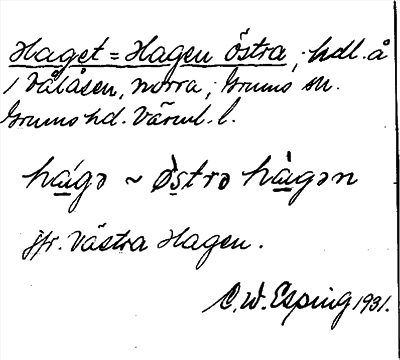 Haget = Hagen östra, hdl. å
1 Vålåsen, norra; Grums sn.
Grums hd. Värml. l.
hága ~ ö̀strə hàgən
jfr. Västra Hagen.
C. W. Esping 1931.